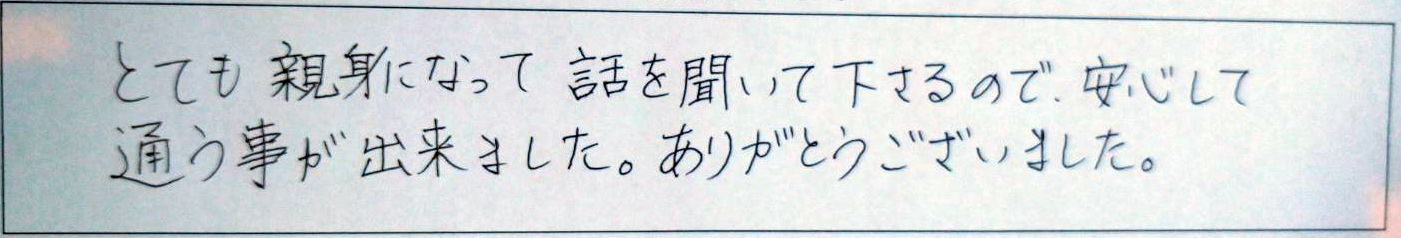 とても親身になって話を聞いて下さるので、安心して
通う事が出来ました。ありがとうございました。